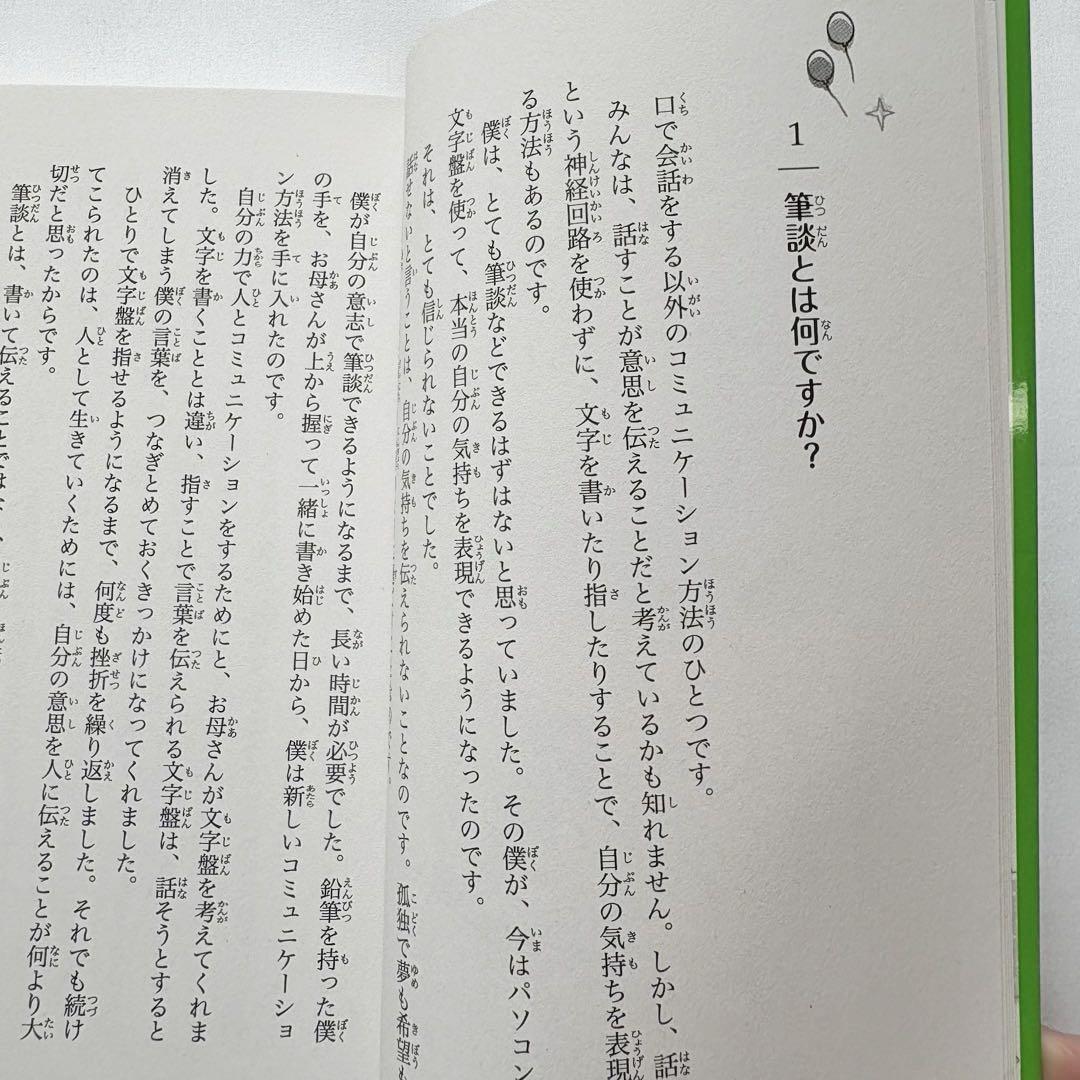 1 筆談とは何ですか？
口で会話をする以外のコミュニケーション方法のひとつです。
みんなは、話すことが意思を伝えることだと考えているかも知れません。しかし、話
という神経回路を使わずに、文字を書いたり指したりすることで、自分の気持ちを表現
る方法もあるのです。
僕は、とても筆談などできるはずはないと思っていました。その僕が、今はパソコン
文字盤を使って、本当の自分の気持ちを表現できるようになったのです。
それは、とても信じられないことでした。
話せないと言うことは、自分の気持ちを伝えられないことなのです。孤独で夢も希望も
僕が自分の意志で筆談できるようになるまで、長い時間が必要でした。鉛筆を持った僕
の手を、お母さんが上から握って一緒に書き始めた日から、僕は新しいコミュニケーショ
ン方法を手に入れたのです。
自分の力で人とコミュニケーションをするためにと、お母さんが文字盤を考えてくれま
した。文字を書くこととは違い、指すことで言葉を伝えられる文字盤は、話そうとすると
消えてしまう僕の言葉を、つなぎとめておくきっかけになってくれました。
ひとりで文字盤を指せるようになるまで、何度も挫折を繰り返しました。それでも続け
てこられたのは、人として生きていくためには、自分の意思を人に伝えることが何より大
切だと思ったからです。
筆談とは、書いて伝えることではなく、